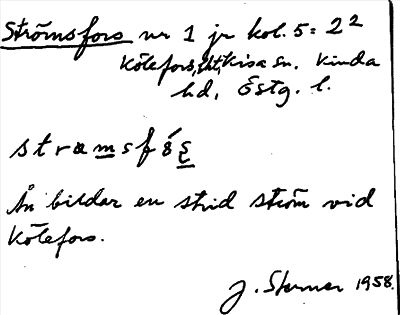 Strömsfors nr 1 jr kol. 5: 2²
Kölefors, Kisa sn. Kinda
hd, Östg. l.
Ån bildar en strid ström vid
Kölefors.
J. Sterner 1958.